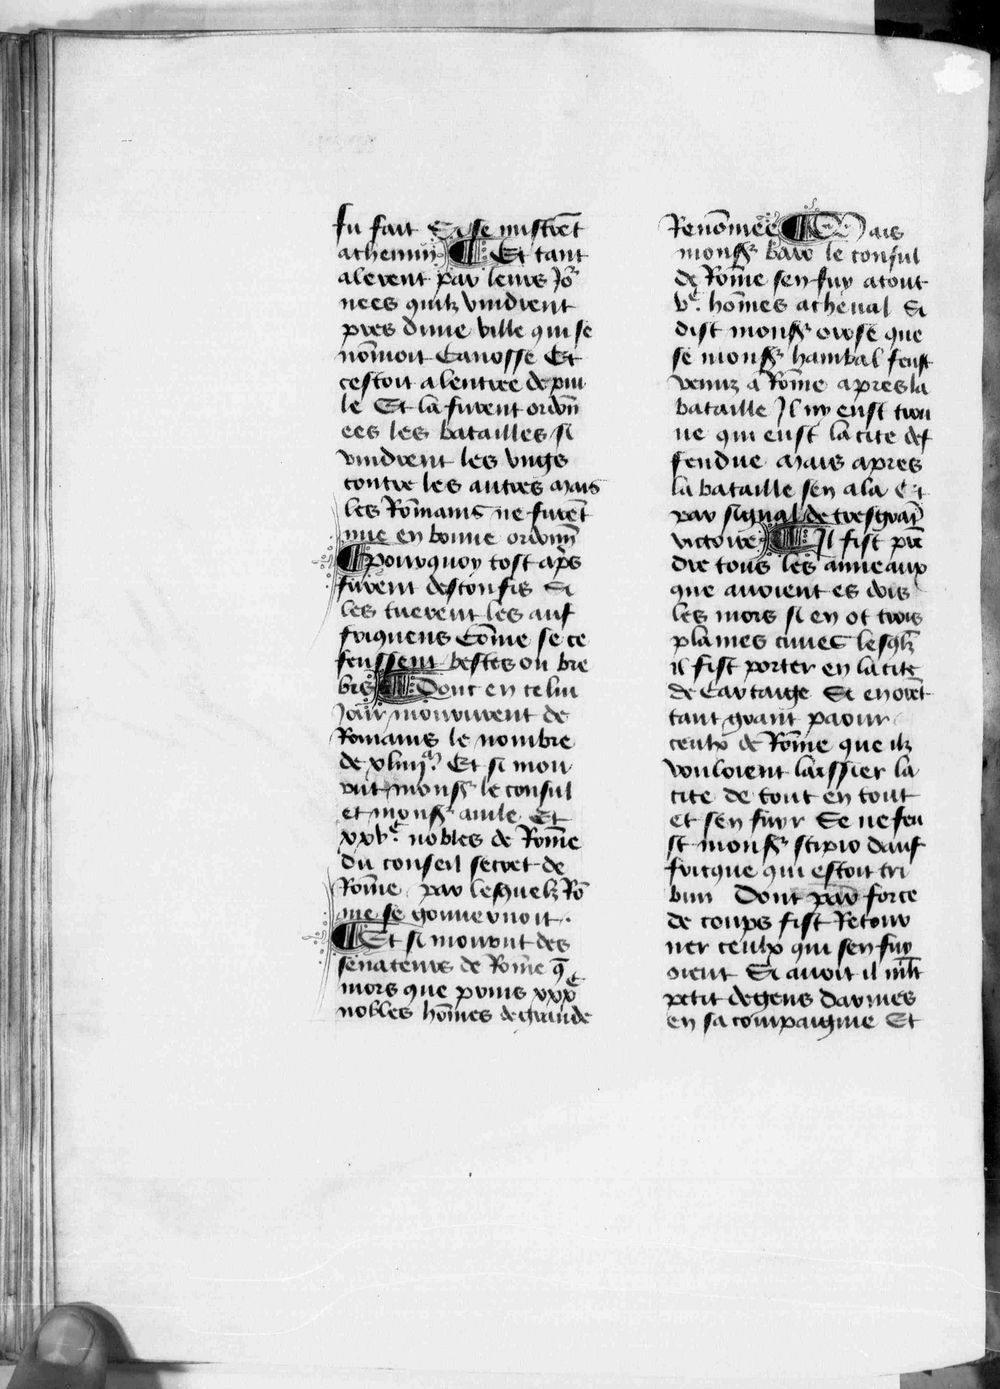 Fu fait Si se mistrẽt
achemin ¶ Et tant
alerent par leurs Jo᷑
nees quilz vindrent
pres dune ville qui se
nõmoit Canosse Et
cestoit alentree depui
le Et la furent ordõn
ees les batailles si
vindrent les vngs
contre les autres mais
les Rõmains ne furẽt
mie en bonne ordõnn
¶ pourquoy tost ap̃s
furent desconfis Si
les tuerent les auf
friquens Cõme se ce
feussent bestes ou bre
bis ¶ Dont en celui
Jour moururent de
Romains le nombre
de xliiii Et si mou
rut mons᷑ le consul
et mons᷑ amile Et
xxv nobles de Rõme
du conseil secret de
Rõme par lesquelz Rõ
me se gouuernoit.
¶ Et si mourut des
senateurs de Rõme q̃
mors que prins xxx
nobles hõmes de grande
Renõmee ¶ Mais
mons᷑ baro le consul
de Rõme sen fuy atout
vᶜ. hõmes acheual Si
dist mons᷑ orose que
se mons᷑ hanibal feust
venuz a Rõme apres la
bataille Il ny eust trou
ue qui eust la cite def
fendue Mais apres
la bataille sen ala Et
par signal de tresgrãt
victoire ¶ Il fist prẽ
dre tous les anneaux
que auoient es dois
les mors si en ot trois
plaines cuues lesq̃lz
il fist porter en la cite
de Cartaige Si en orẽt
tant grant paour
ceulx de Rõme que ilz
vouloient laissier la
cite de tout en tout
et sen fuyr Se ne feu
st mons᷑ scipio dauf
fricque qui estoit tri
bun Dont par force
de coups fist Retour
ner ceulx qui sen fuy
oient Si auoit il mlt
petit degens darmes
en sa compaignie Et